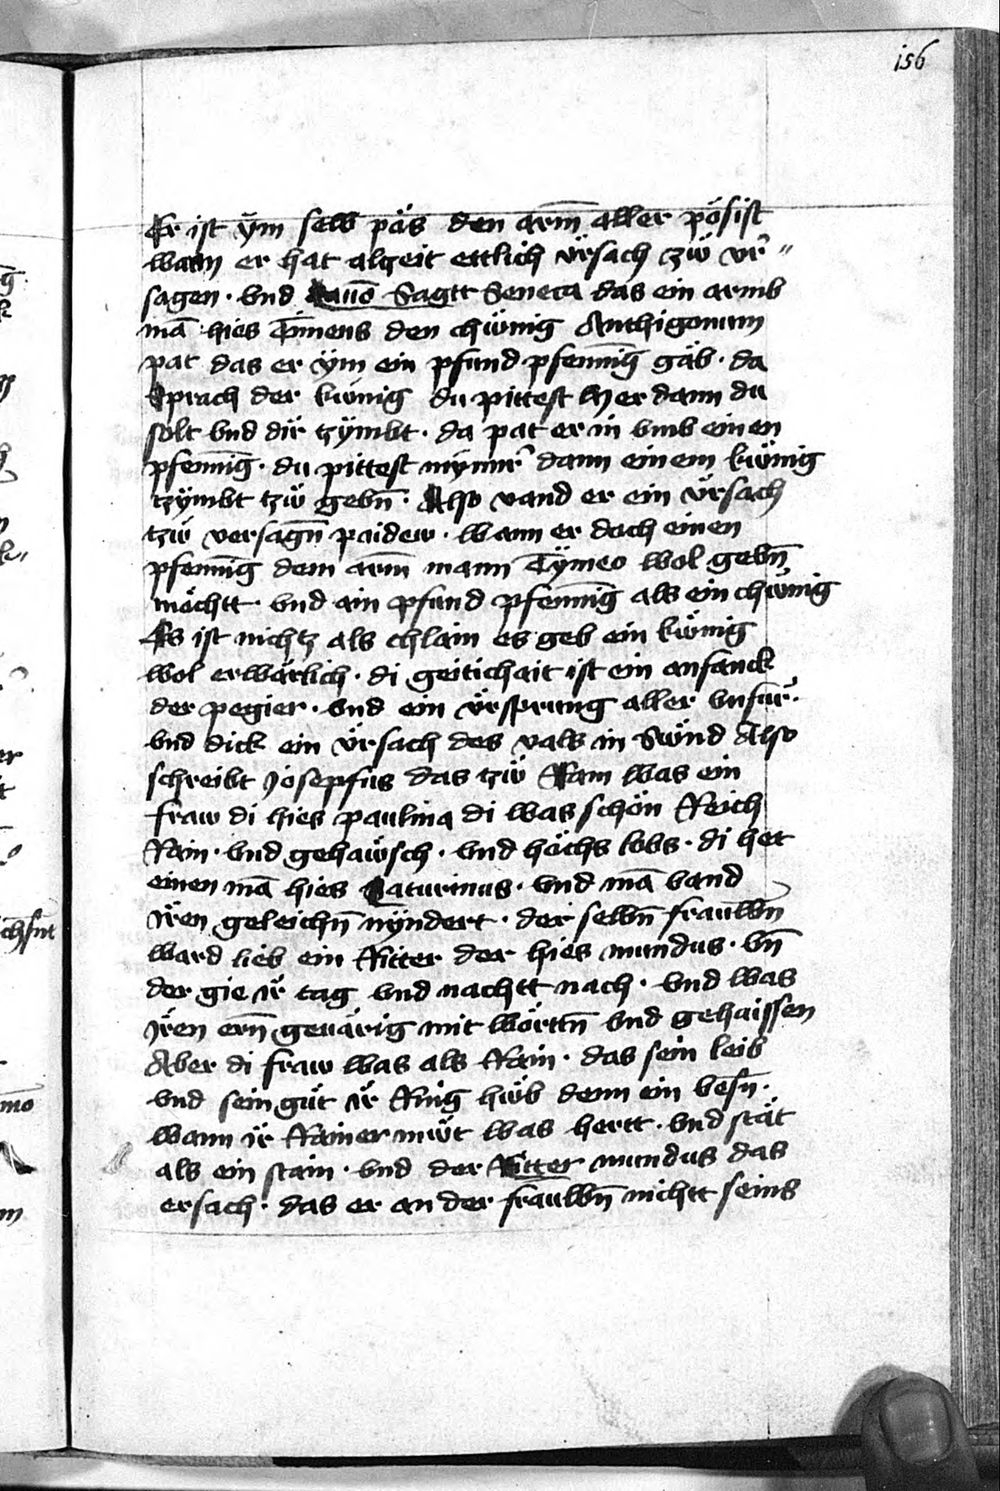 156
Er ist ÿm selb päs den arm̄ aller pösist
wann er hat alzeit ettlich ürsach zẅ vr̄ "
sagen · vnd dauō Sagtt Seneca das ein armb
mā hies Timens den chẅnig Anthigonum
pat das er ÿm ein pfund pfenni̅g gäb · da
Sprach der kẅnig du pittest mer dann du
solt vnd dir tzÿmbt · da pat er in vmb einen
pfenni̅g · du pittest mÿnnr̄ dann einem kẅnig
tzÿmbt tzẅ gebn̄ · Also vand er ein ürsach
tzẅ versagn̄ paidew · wann er doch einen
pfenni̅g dem arm̄ mann Tÿmeo wol gebn̄
möchtt · vnd ain pfund pfenni̅g als ein chẅnig
Es ist nichtz als chlain es geb ein kẅnig
wol erwärlich · di geitichait ist ein anfanck
der pegier · vnd ein ürsprung aller vnfur̄ ·
vnd dick ein ürsach des vals in Sẅnd Also
schreibt Josepfus das tzẅ Ram was ein
fraw di hies paulina di was schön Reich
Rain · vnd gehaẅsch · vnd höchs lobs · di het
einen mā hies Saturinus · vnd mā vand
iren geleichn̄ nÿndert · der selbn̄ frauwn̄
ward lieb ein Ritter der hies mundus · vn̄
der gie ir tag vnd nachtt nach · vnd was
iren ern̄ geuärig mit wörttn̄ vnd gehaissen
Aber di fraw was als Rain · das sein leib
vnd sein güt ir Ring hẅb denn ein besn̄ ·
wann ir Rainer mẅt was hertt · vnd stät
als ein stain · vnd der Ritter mundus das
ersach · das er an der frauwn̄ nichtt seins